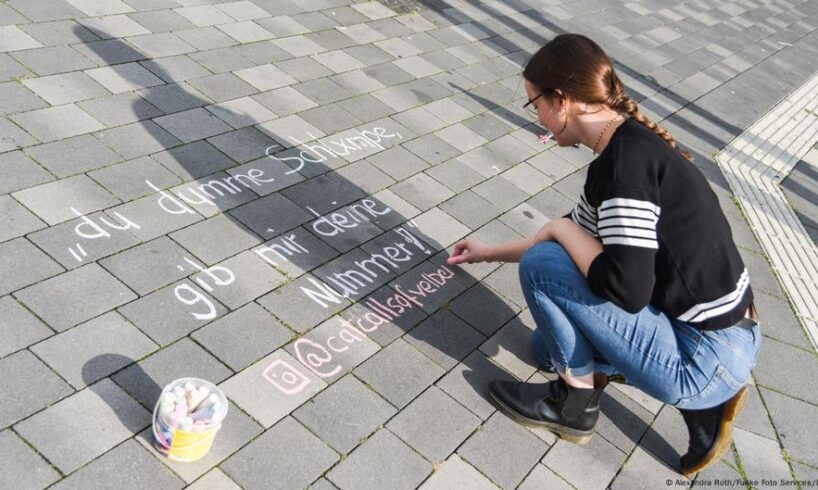 „du dumme Schlimpe,
gib mir deine
Nummer!"
@catcallsofvelbei
© Alexandra Roth/Funke Foto Services/I